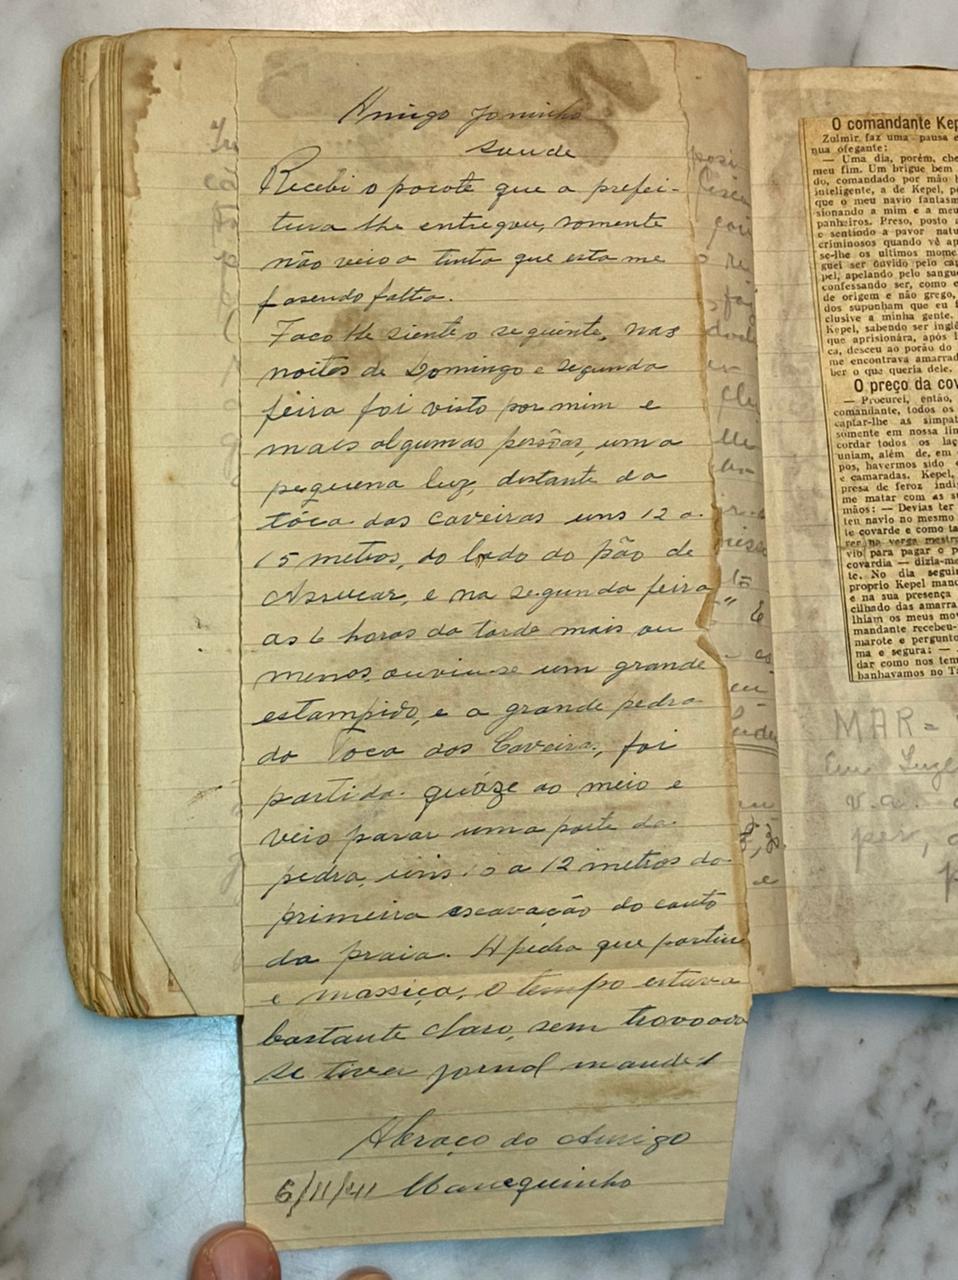 Amigo Joninho
saude
Recebi o pacote que a prefei-
tura lhe entregou, somente
não veio a tinta que esta me
fasendo falta.
Faco lhe siente o seguinte, nas
noites de Domingo e segunda
feira foi visto por mim e
mais algumas persôas, uma
pequena luz, distante da
tóca das caveiras uns 12 a
15 metros, do lado do pão de
Assucar, e na segunda feira
as 6 horas da tarde mais ou
menos, ouviu-se um grande
estampido, e a grande pedra
da Toca das Caveira, foi
partida quáze ao meio e
veio parar uma parte da
pedra, uns 10 a 12 metros da
primeira escavação do canto
da praia. A pedra que partiu
e massiça, o tempo estava
bastante claro, sem trovoada
se tiver jornal mande
Abraço do Amigo
6/11/41 Manequinho
O comandante Kep
Zulmir faz uma pausa e
nua ofegante:
— Uma dia, porém, che
meu fim. Um brigue bem
do, comandado por mão
inteligente, a de Kepel, po
que o meu navio fantasm
sionando a mim e a meu
panheiros. Preso, posto a
e sentiado a pavor natu
criminosos quando vê ap
se-lhe os ultimos mome
guei ser ouvido pelo cap
pel, apelando pelo sangue
confessando ser, como e
de origem e não grego,
dos supunham que eu f
clusive a minha gente.
Kepel, sabendo ser inglê
que aprisionára, após l
ca, desceu ao porão do
me encontrava amarrad
ber o que queria dele.
O preço da cov
— Procurei, então,
comandante, todos os
captar-lhe as simpat
somente em nossa lin
cordar todos os laç
uniam, além de, em
pos, havermos sido
e camaradas. Kepel,
presa de feroz indi
me matar com as su
mãos: — Devias ter
teu navio no mesmo
te covarde e como ta
rer na verga mestra
vio para pagar o p
covardia — dizia-me
te. No dia segui
proprio Kepel manc
e na sua presença
cilhado das amarra
lhiam os meus mov
mandante recebeu-
marote e pergunto
ma e segura: —
dar como nos tem
banhavamos no Ta
MAR =
v. a.